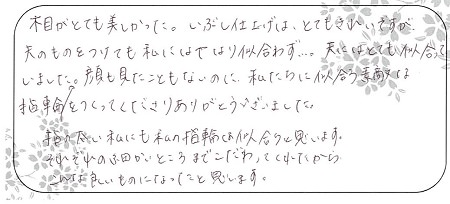 木目がとても美しかった。いぶし仕上げは、とてもきれいですが、
夫のものをつけても私にはやはり似合わず…。夫にはとても似合って
いました。顔も見たこともないのに、私たちに似合う素敵な
指輪をつくってくださりありがとうございました。
指の太い私にも私の指輪は似合うと思います。
それぞれの細かいところまでこだわってくれたから
こんな良いものになったと思います。